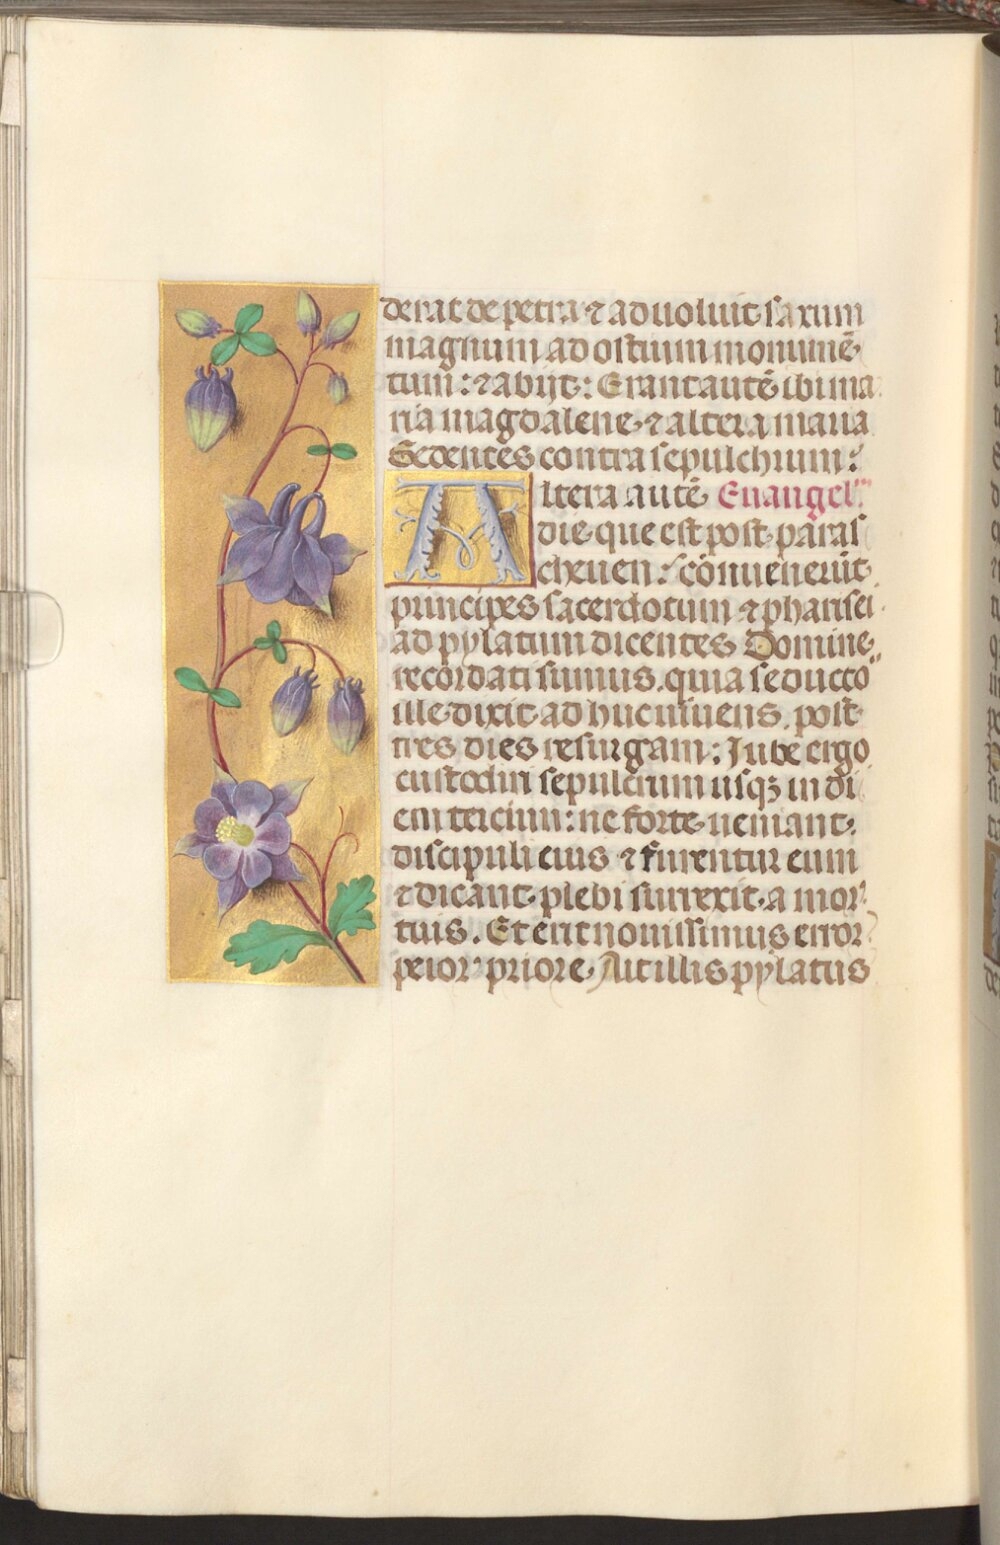 derat de petra ⁊ aduoluit saxum
magnum ad ostium monumē
tum: ⁊ abijt: Erant autē ibi ma
ria magdalene ⁊ altera maria
Sedentes contra sepulchrum:
Altera autē Euangel
die que est post paras
cheuen: cōuenerūt
principes sacerdotum ⁊ pharisei
ad pylatum dicentes Domine
recordati sumus quia seducto
ille dixit adhuc uiuens. post
tres dies resurgam: Jube ergo
custodiri sepulcrum usqꝫ in di
em tercium: ne forte ueniant
discipuli eius ⁊ furentur eum
⁊ dicant plebi surrexit a mor
tuis. Et erit nouissimus error
peior priore Ait illis pylatus